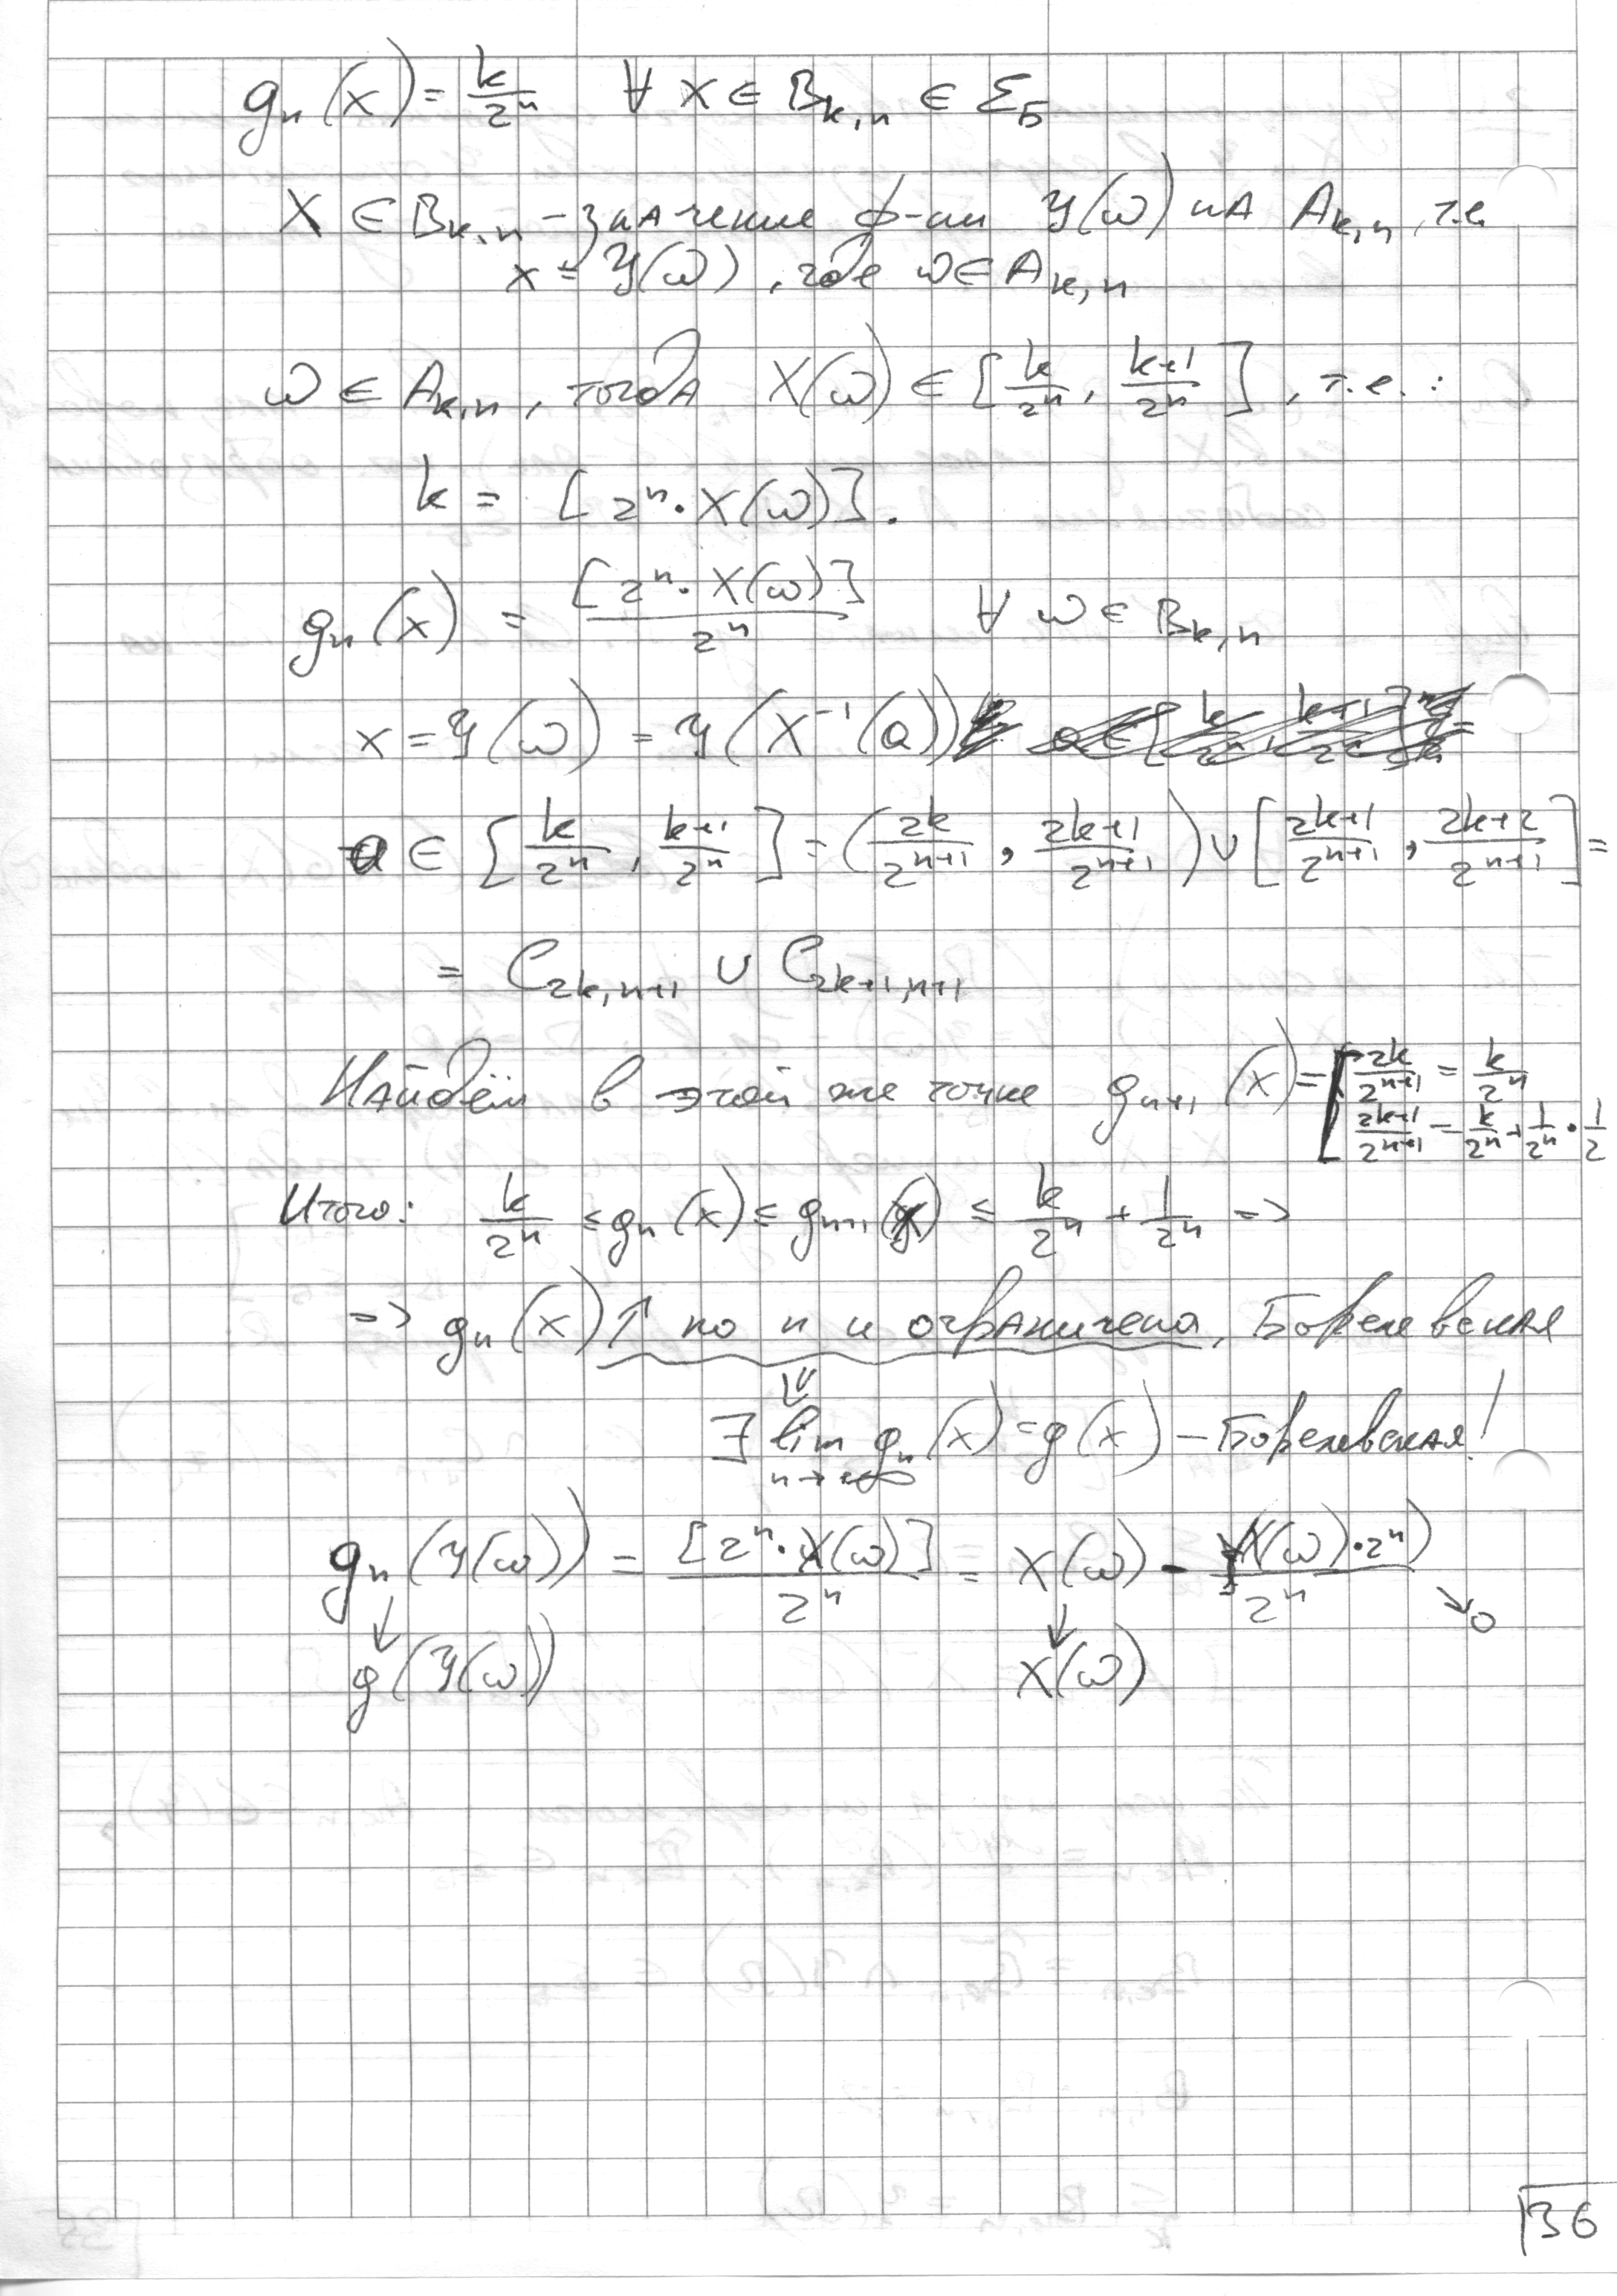 gₙ(x) = k/2ⁿ ∀ x ∈ Bₖ,ₙ ∈ Σ_Б
X ∈ Bₖ,ₙ – значение ф-ии Y(ω) на Aₖ,ₙ, т.е.
x = Y(ω), где ω ∈ Aₖ,ₙ
ω ∈ Aₖ,ₙ, тогда X(ω) ∈ [k/2ⁿ, (k+1)/2ⁿ], т.е.:
k = [2ⁿ·X(ω)].
gₙ(x) = [2ⁿ·X(ω)]/2ⁿ ∀ ω ∈ Bₖ,ₙ
x = Y(ω) = Y(X⁻¹(a))
a ∈ [k/2ⁿ, (k+1)/2ⁿ] = (2k/2ⁿ⁺¹, (2k+1)/2ⁿ⁺¹) ∪ [(2k+1)/2ⁿ⁺¹, (2k+2)/2ⁿ⁺¹] =
= C₂ₖ,ₙ₊₁ ∪ C₂ₖ₊₁,ₙ₊₁
Найдём в этой же точке gₙ₊₁(x) = [ 2k/2ⁿ⁺¹ = k/2ⁿ
(2k+1)/2ⁿ⁺¹ = k/2ⁿ + 1/2ⁿ · 1/2
Итого: k/2ⁿ ≤ gₙ(x) ≤ gₙ₊₁(x) ≤ k/2ⁿ + 1/2ⁿ =>
=> gₙ(x) ↑ по n и ограничена, Борелевская
⇓
∃ lim n→∞ gₙ(x) = g(x) – Борелевская!
gₙ(Y(ω)) = [2ⁿ·X(ω)]/2ⁿ = X(ω) - {X(ω)·2ⁿ}/2ⁿ ↘ 0
↓ ↓
g(Y(ω)) X(ω)
36